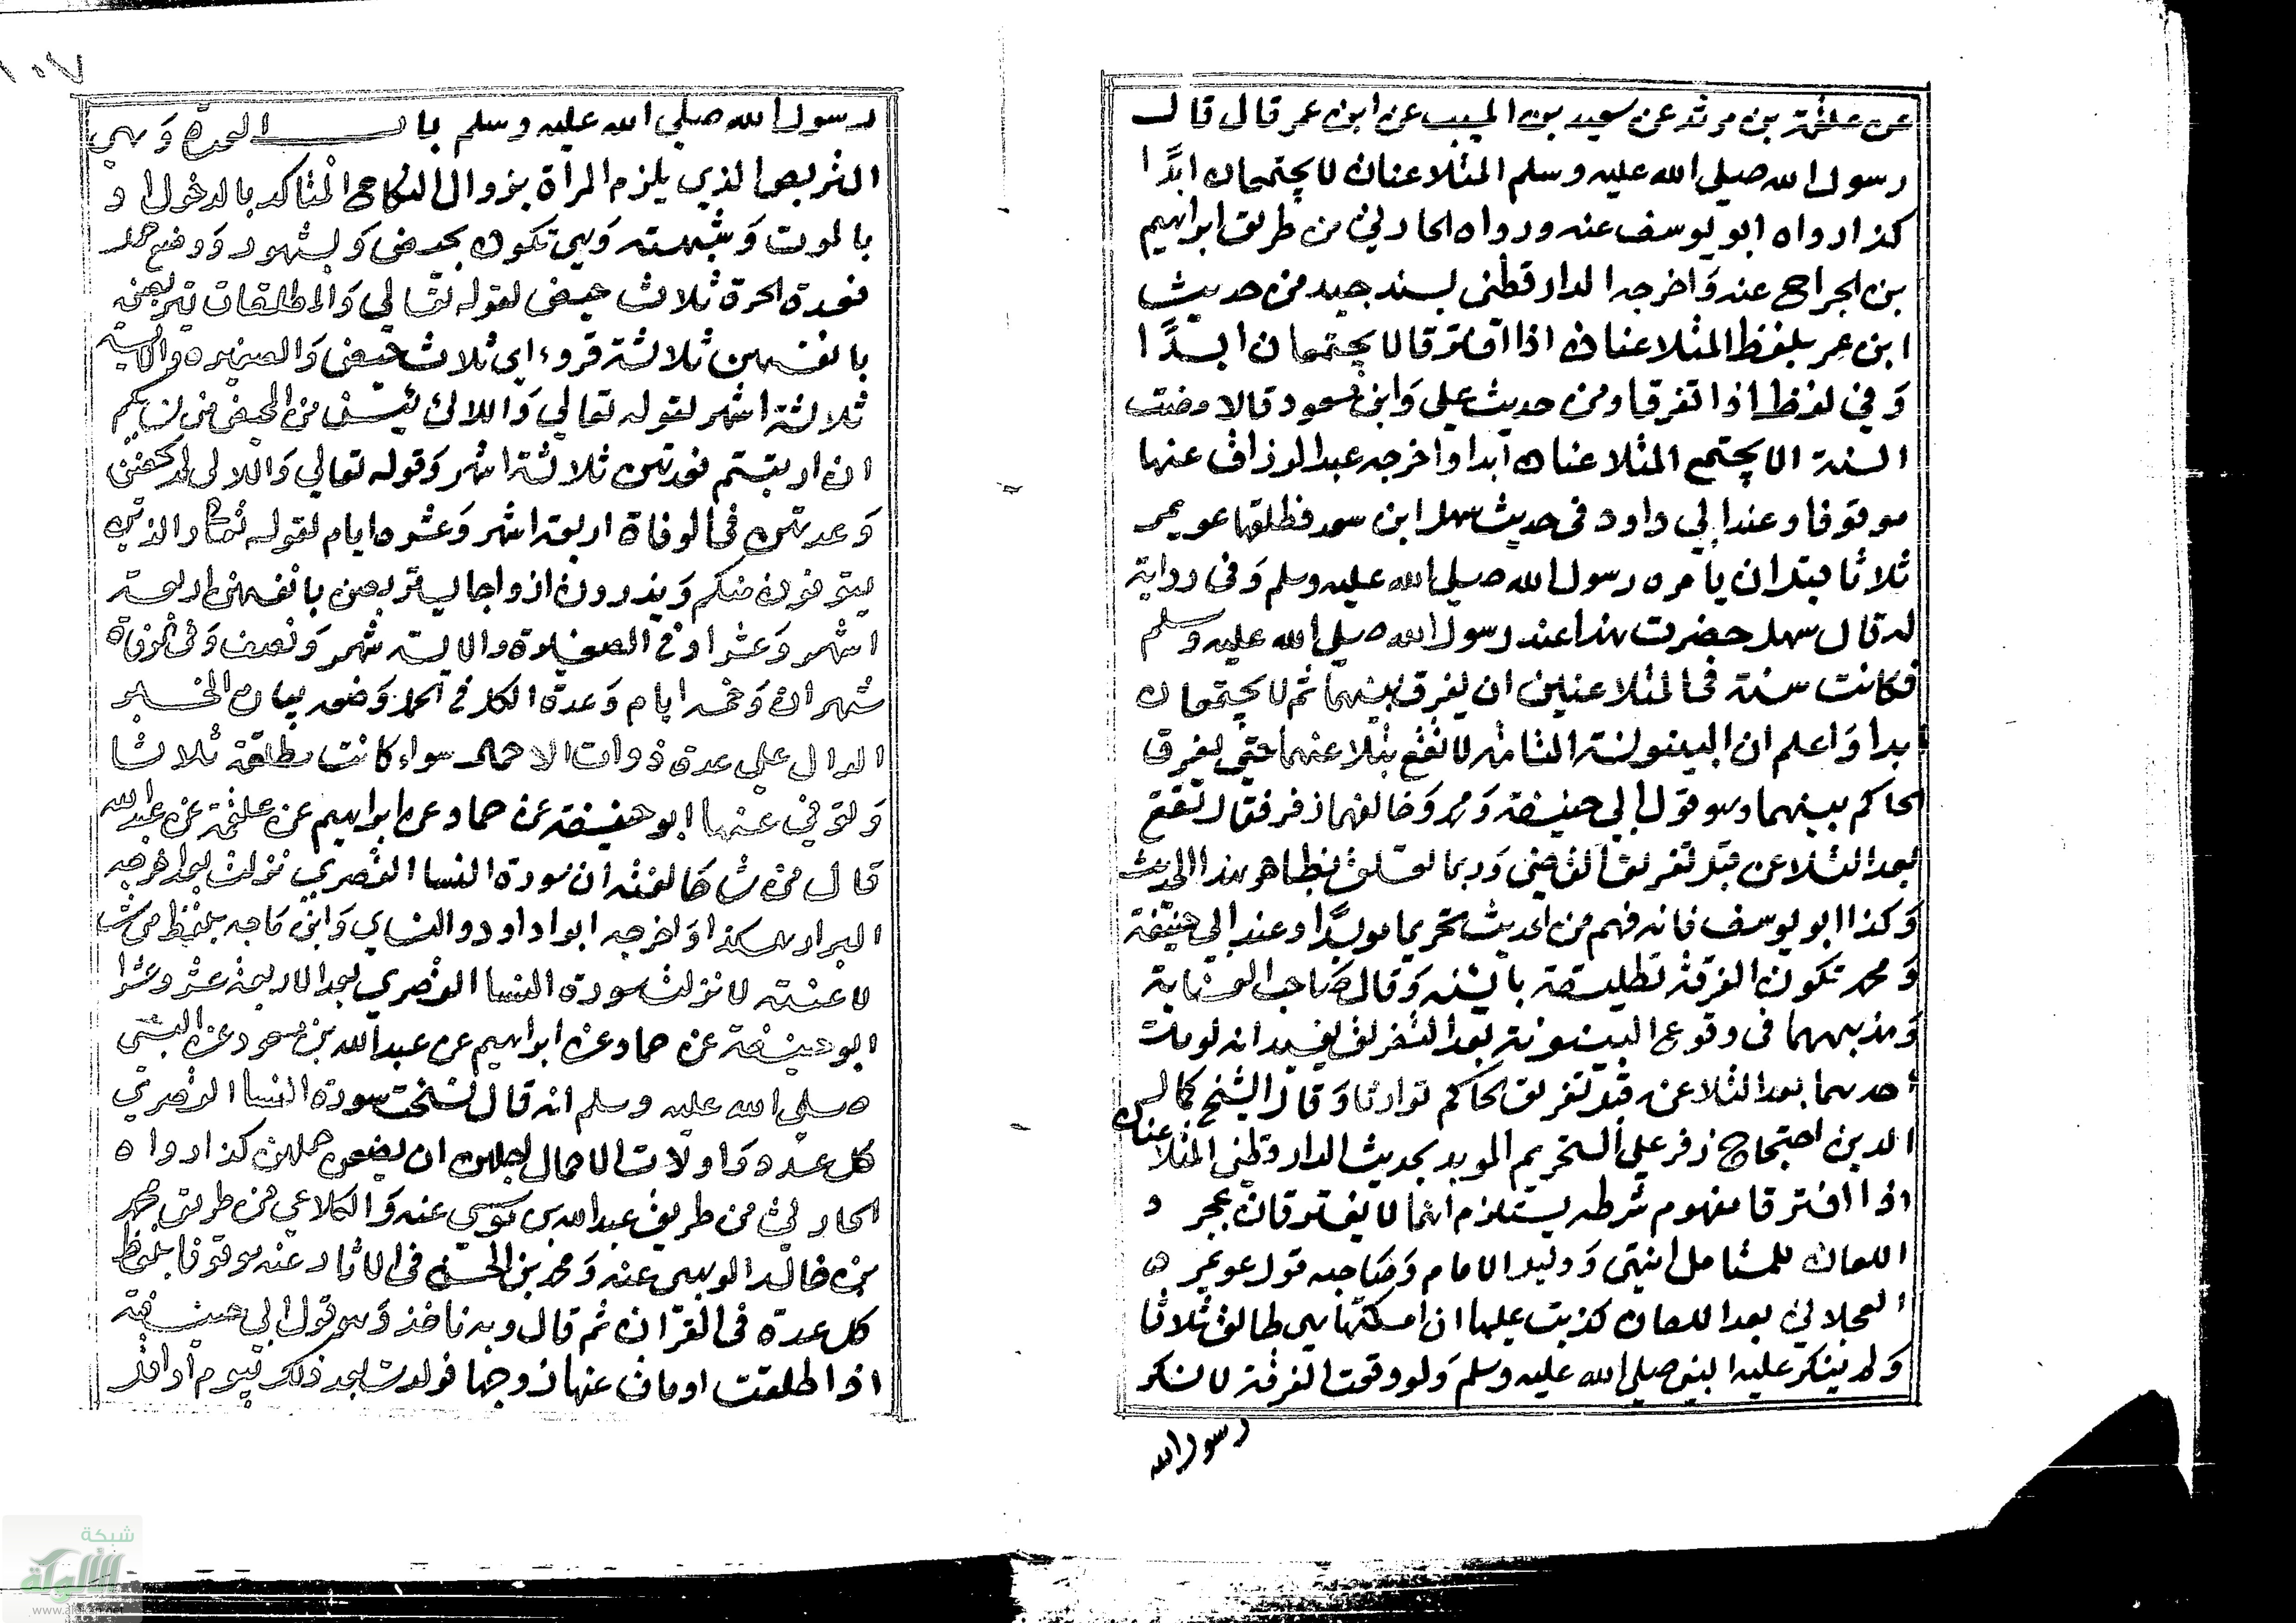 عن علقمة بن مرثد عن سعيد بن المسيب عن ابن عمر قال قال
رسول الله صلي الله عليه وسلم المتلاعنان لا يجتمعان ابدًا
كذا رواه ابو يوسف عنه ورواه الحارثي من طريق ابراهيم
بن الجراح عنه وَاخرجه الدارقطني بسند جيد من حديث
ابن عمر بلفظ المتلاعنان اذا افترقا لا يجتمعان ابدًا
وَفي لفظ اذا تفرقا ومن حديث علي وَابن مسعود قالا مضت
السنة الا يجتمع المتلاعنان ابدا واخرجه عبد الرزاق عنهما
موقوفا وعند ابي داود في حديث سهل ابن سعد فطلقها عويمر
ثلاثا قبل ان يامره رسول الله صلي الله عليه وسلم وَفي رواية
له قال سهل حضرت هذا عند رسول الله صلي الله عليه وسلم
فكانت سنة في المتلاعنين ان يفرق بينهما ثم لا يجتمعان
ابدا وَاعلم ان البينونة الثابتة لا تقع بتلاعنهما حتي يفرق
الحاكم بينهما وهو قول ابي حنيفة وَمحمد وَخالفهما زفر فقال تقع
بعد التلاعن قبل تفريق القاضي وَربما تعلق بظاهر هذا الحديث
وَكذا ابو يوسف فانه فهم من الحديث تحريما موبدًا وعند ابي حنيفة
وَمحمد تكون الفرقة تطليقة باينه وَقال صاحب العناية
وَمذهبهما في وقوع البينونة بعد التفريق يفيد انه لو مات
احدهما بعد التلاعن قبل تفريق الحاكم توارثا وَقال الشيخ كمال
الدين احتجاج زفر علي التحريم الموبد بحديث الدارقطني المتلاعنان
اذا افترقا مفهوم شرطه يستلزم انهما لا يفترقان بمجرد
اللعان للمتامل انتهي وَدليل الامام وَصاحبه قول عويمر
العجلاني بعد اللعان كذبت عليها ان امسكتها هي طالق ثلاثا
وَلم ينكر عليه النبي صلي الله عليه وسلم وَلو وقعت الفرقة لانكر
رسول الله
١٠٧
رسول الله صلي الله عليه وسلم باب العدة وَهي
التربص الذي يلزم المراة بزوال النكاح المتاكد بالدخول او
بالموت وَشبهته وَهي تكون بحيض وَبشهور وَوضع حمل
فعدة الحرة ثلاث حيض لقوله تعالي وَالمطلقات يتربصن
بانفسهن ثلاثة قروء اي ثلاث حيض وَالصغيره والايسة
ثلاثة اشهر لقوله تعالي وَاللائ يئسن من المحيض من نسايكم
ان ارتبتم فعدتهن ثلاثة اشهر وَقوله تعالي وَاللائي لم يحضن
وَعدتهن في الوفاة اربعة اشهر وَعشره ايام لقوله تعالي والذين
يتوفون منكم وَيذرون ازواجا يتربصن بانفسهن اربعة
اشهر وَعشرا وَفي الصغيرة والايسة شهر وَنصف وَفي الوفاة
شهران وَخمسة ايام وَعدة الكل في الحمل وَضعه بيان الخبر
الدال علي عدة ذوات الاحمال سواء كانت مطلقة ثلاثا
وَتوفي عنها ابو حنيفة عن حماد عن ابراهيم عن علقمة عن عبد الله
قال من شا حالفته ان سورة النسا القصري نزلت بعد اخرجه
البزار هكذا وَاخرجه ابوا داود والنساي وَابن ماجه بلفظ من شا
لاعنته لانزلت سورة النسا القصري بعد الاربعة عشر وعشرا
ابو حنيفة عن حماد عن ابراهيم عن عبد الله بن مسعود عن النبي
صلي الله عليه وسلم انه قال نسخت سورة النسا القصري
كل عدة وَاولات الاحمال اجلهن ان يضعن حملهن كذا رواه
الحارثي من طريق عبد الله بن موسي عنه وَالكلاعي من طريق محمد
بن خالد الوهبي عنه وَمحمد بن الحسن في الاثار عنه موقوفا بلفظ
كل عدة في القران ثم قال وبه ناخذ وَهو قول ابي حنيفة
اذا طلقت او مات عنها زوجها فولدت بعد ذلك بيوم او اقل
شبكة
الألوكة
www.alukah.net